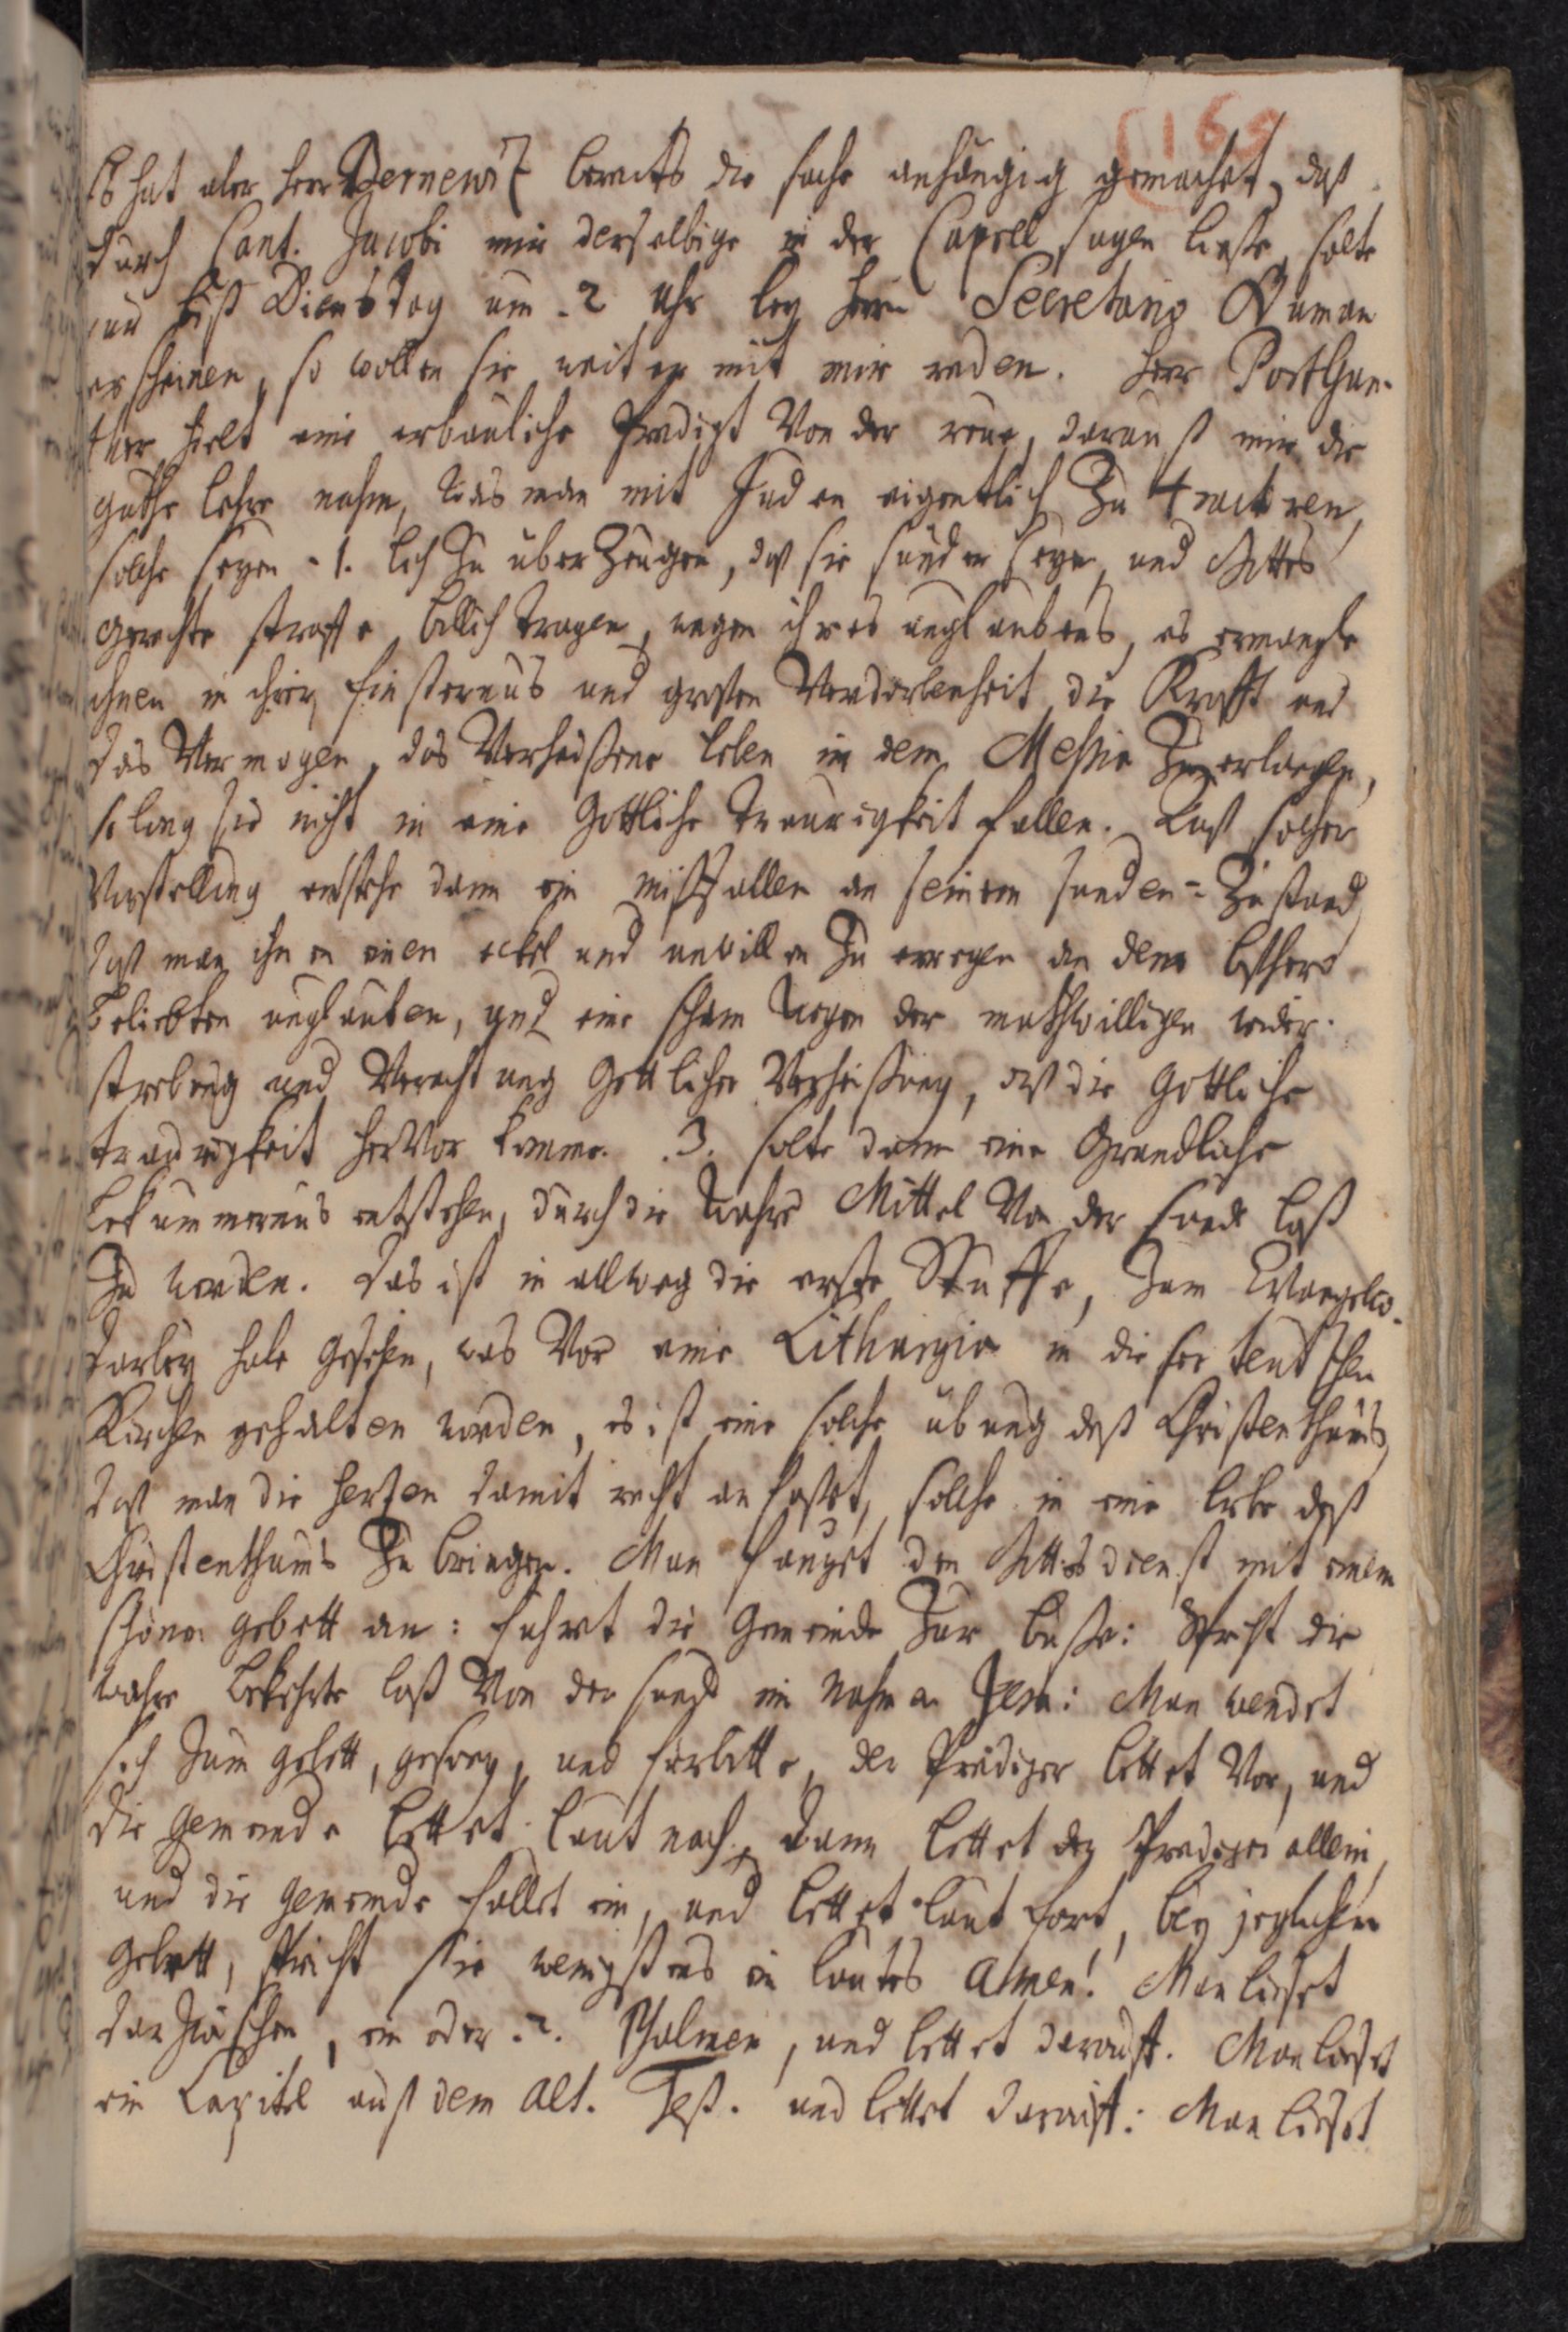 (165
Es hat aber Herr Bernewitz bereits die sache anhängig gemacht, daß
durch Cant. Jacobi mir derselbige in der Capell sagen ließe, solte
nur biß Dienstag um 2 Uhr bey Herrn Secretario
erscheinen, so wollen sie weiter mit mir reden. Herr
hielt eine erbauliche Predigt Von der reue, darauß mir die
guthe lehre nahm, was man mit Juden eigentlich Zu tractiren,
solche seyen 1. Zu überZeugen, daß sie sünder seyen, und Gottes
gerechte straffe billich tragen, wegen ihres unglaubens, es ermangle
ihnen in ihrer finsternüs und großen Verdorbenheit die Krafft und
das Vermogen, das Verheißene leben in dem Messia Zu erlangen,
so lang sie nicht in eine Göttliche traurigkeit fallen. Auß solcher
Vorstellung entstehe dann ein mißfallen an seinem sünden-Zustand
daß man ihnen einen eckel und unwillen Zu erregen an dem bisher
beliebten unglauben, und eine scham wegen der muthwilligen wider-
strebung und Verachtung Göttlicher Verheißung, daß die Göttliche
traurigkeit herVor komme. 3. solte dann eine Gründliche
bekümmernüs entstehen, durch die wahre Mittel Von der sünde loß
Zu werden. das ist in allweg die erste Stuffe, Zum Evangelio.
darbey habe gesehen, was Vor eine Lithurgia in dieser teutschen
Kirchen gehalten worden, es ist eine solche übung deß Christenthums,
daß man die hertzen damit recht anfasset, solche in eine liebe deß
Christenthums Zu bringen. Man fanget den Gottesdienst mit einem
schönen gebett an: führt die Gemeinde Zur buße: Spricht die
wahre bekehrte loß Von der sünde im Nahmen Jesu: Man wendet
sich Zum gebett, gesang, und fürbitte, der Prediger bettet Vor, und
die gemeinde bettet laut nach, dann bettet der Prediger allein,
und die gemeinde fallet ein, und bettet laut fort, bey jeglichem
gebett, spricht sie wenigstens ein lautes Amen! Man lieset
darZwischen, ein oder 2. Psalmen, und bettet darauf. Man lieset
ein Capitel auß dem Alt. Test. und bettet darauf: Man lieset